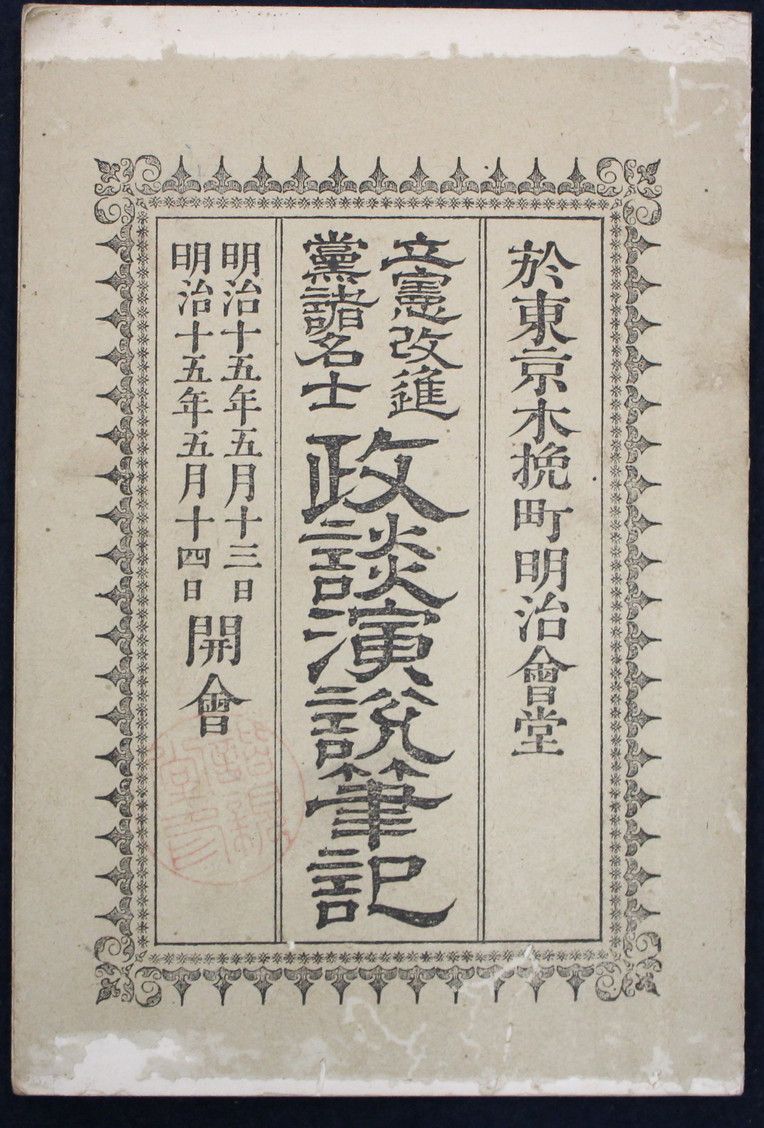 於東京木挽町明治會堂
立憲改進
黨諸名士
政談演說筆記
明治十五年五月十三日
明治十五年五月十四日
開會